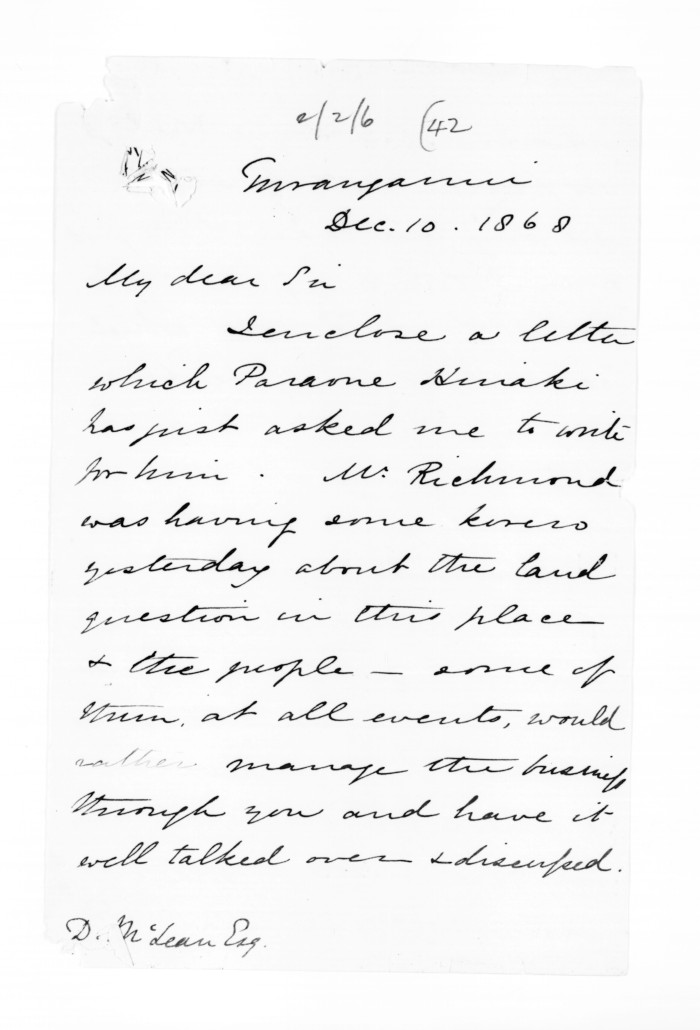 2/2/6 (42
Turanganui
Dec. 10. 1868
My dear Sir
I enclose a letter
which Paraone Hinaki
has just asked me to write
for him. Mr. Richmond
was having some korero
yesterday about the land
question in this place
& the people — some of
them, at all events, would
rather manage the business
through you and have it
well talked over & discussed.
D. McLean Esq.